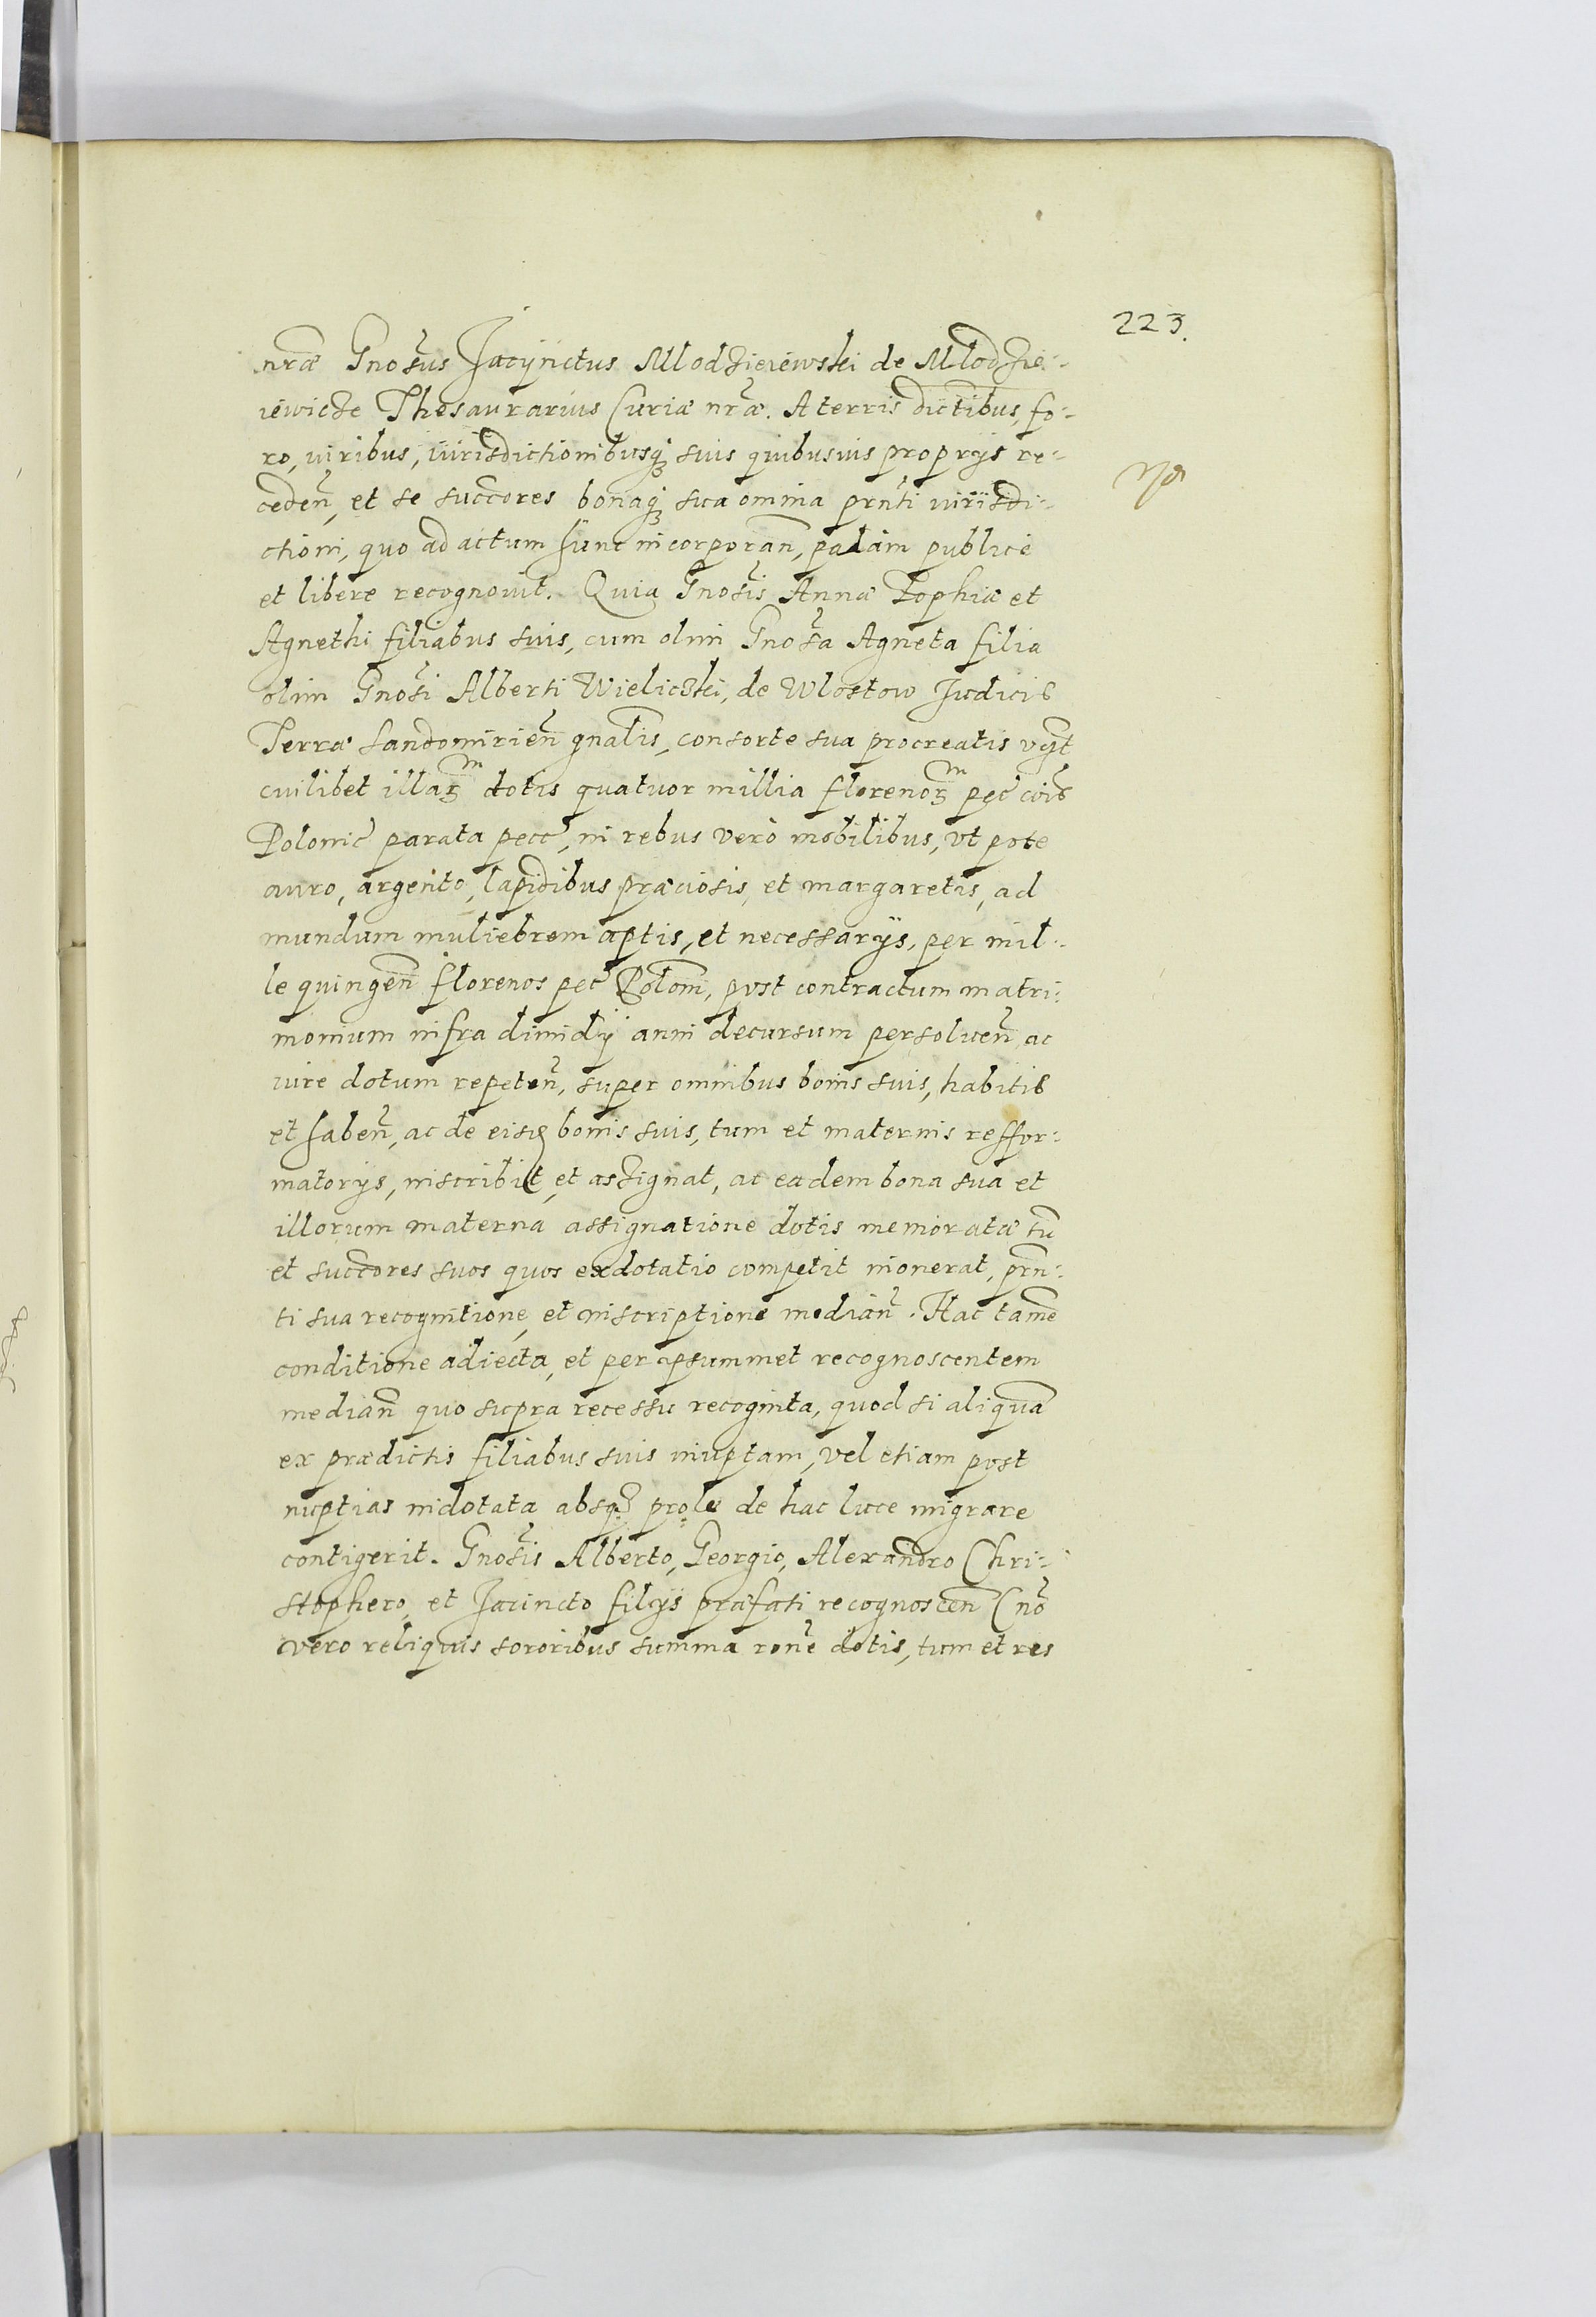 223.
nr̃æ Gnosus Jacynctus Mlodzieiewski de Mlodzie-
iewicze Thesaurarius Curiæ nr̃æ. A terris dictibus, fo-
ro, viribus, iurisdictionibusq; suis quibusuis proprijs re-
ceden̄, et se succores bonaq; sua omnia prn̄ti iurisdi-
ctioni, quo ad actum hunc incorporan̄, palàm publicè
et liberè recognouit. Quia Gnosis Annæ Zophiæ et
Agnethi filiabus suis, cum olim Gnosa Agneta filia
olim Gnosi Alberti Wieliczki, de Wlostow Judicis
Terræ Sandomirien̄ gnalis, consorte sua procreatis vg̃t
cuilibet illaꝝ dotis quatuor millia florenoꝝ pec̃ cõis
Polonic̃ parata pecc̃, in rebus verò mobilibus, vt pote
auro, argento, lapidibus præciosis, et margaretis, ad
mundum muliebrem aptis, et necessarijs, per mil-
le quingen̄ florenos pec̃ Polon̄, post contractum matri-
monium infra dimidij anni decursum persoluen̄ ac
iure dotum repeten̄, super omnibus bonis suis, habitis
et haben̄, ac de eisd bonis suis, tum et maternis reffor-
matorijs, inscribit, et assignat, ac eadem bona sua et
illorum materna assignatione dotis memoratæ su
et succores suos quos exdotatio competit inonerat, prn̄-
ti sua recognitione, et inscriptione median̄. Hac tamē
conditione adiecta, et per ipsummet recognoscentem
median̄ quo supra recessu recognita, quod si aliquā
ex prædictis filiabus suis inuptam, vel etiam post
nuptias indotata absq; prole de hac luce migrare
contigerit. Gnosis Alberto, Georgio, Alexandro Chri-
stophero, et Jacincto filijs præfati recognoscen̄ (nõ
vero reliquis sororibus summa rone dotis, tum et res